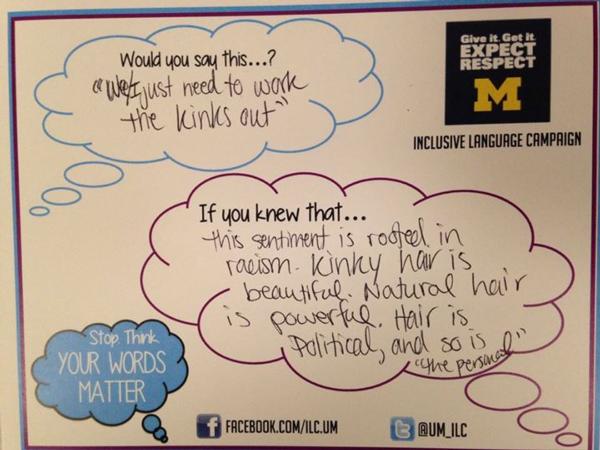 Would you say this...?
"We/I just need to work
the kinks out"
Give it. Get it.
EXPECT
RESPECT
M
INCLUSIVE LANGUAGE CAMPAIGN
If you knew that...
this sentiment is rooted in
racism. Kinky hair is
beautiful. Natural hair
is powerful. Hair is
Political, and so is
"the personal"
Stop. Think.
YOUR WORDS
MATTER
f FACEBOOK.COM/ILC.UM
@UM_ILC